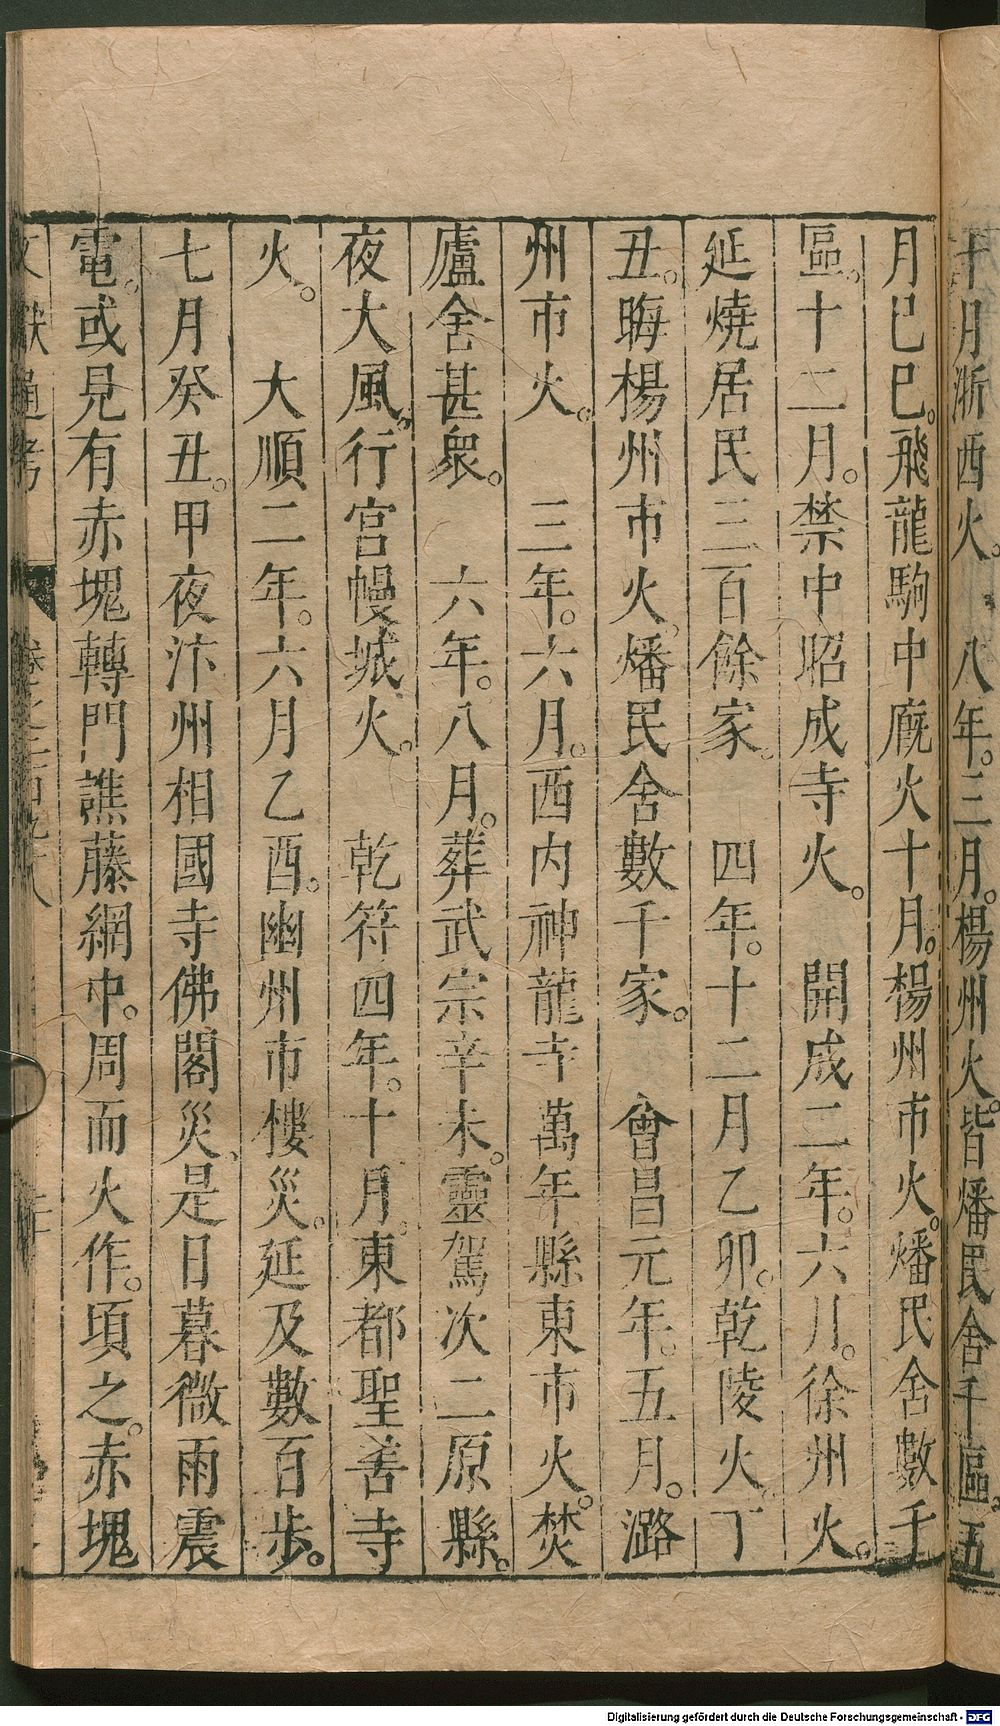 十月浙西火。八年。三月。楊州火。皆燔民舍千區。五
月己巳。飛龍駒中廐火十月。楊州市火。燔民舍數千
區。十二月。禁中昭成寺火。 開成二年。六月。徐州火。
延燒居民三百餘家。 四年。十二月乙卯。乾陵火。丁
丑。晦楊州市火。燔民舍數千家。 會昌元年。五月。潞
州市火。 三年。六月。西内神龍寺 萬年縣東市火。焚
廬舍甚衆。 六年。八月。葬武宗辛未。靈駕次二原縣。
夜大風。行宮幔城火。 乾符四年。十月。東都聖善寺
火。 大順二年。六月乙酉。幽州市樓災。延及數百步。
七月癸丑。甲夜汴州相國寺佛閣災、是日暮微雨震
電。或見有赤塊轉門譙藤網中。周而火作。頃之。赤塊
文獻通考
Digitalisierung gefördert durch die Deutsche Forschungsgemeinschaft - DFG